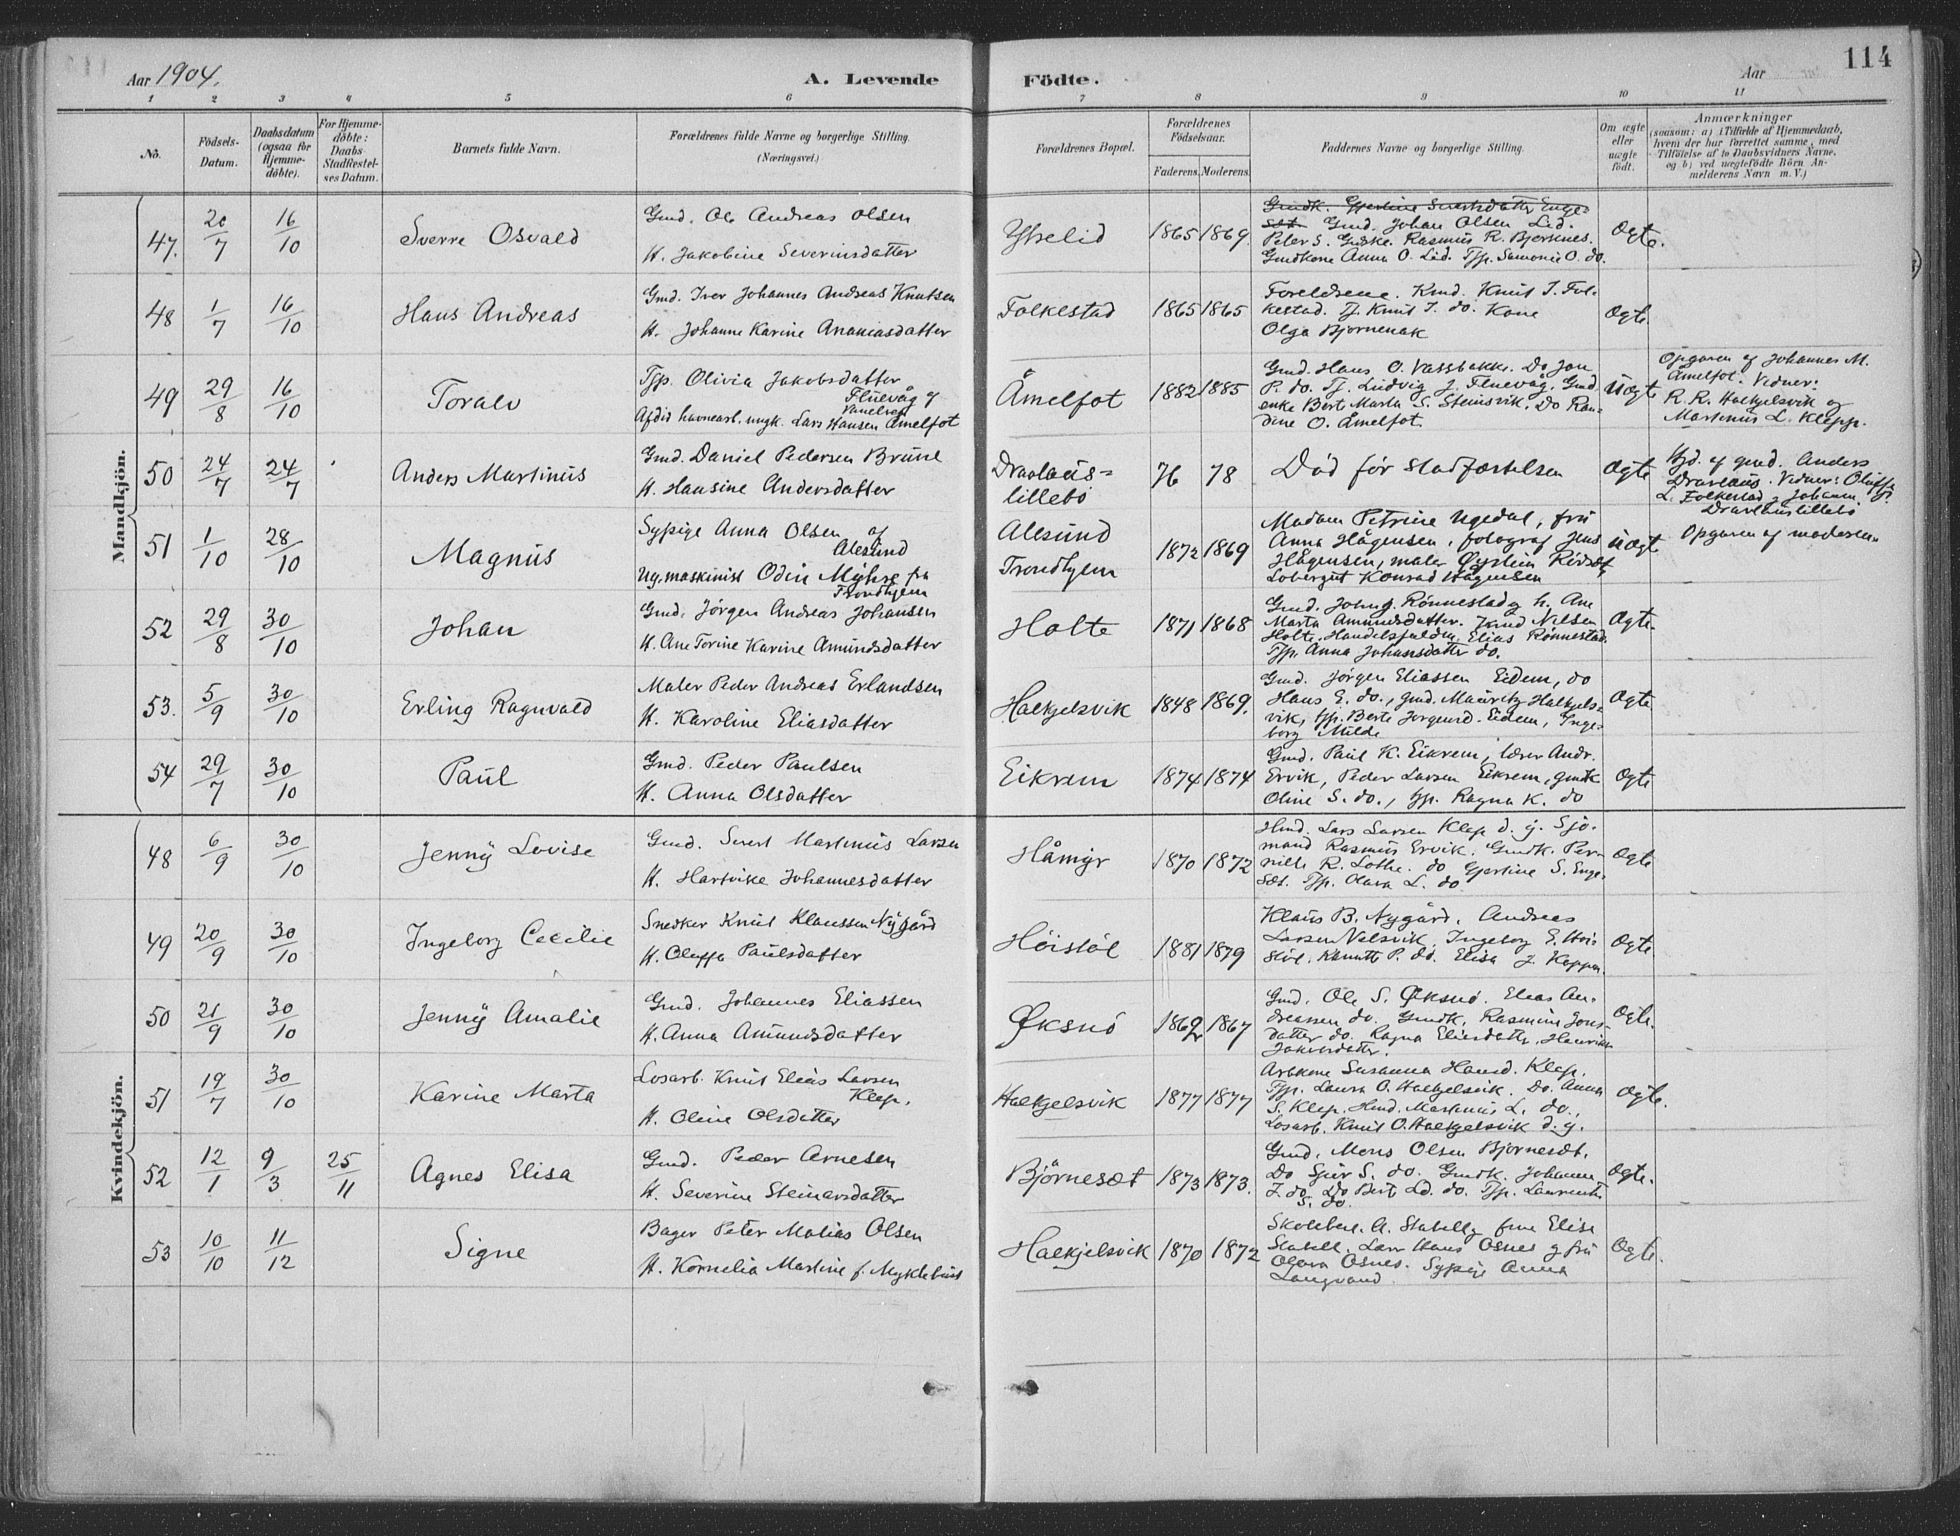 114
Aar 1904.
A. Levende
Födte.
Aar
1 2 3 4 5 6 7 8 9 10 11
No.
Födsels-
Datum.
Daabsdatum
(ogsaa för
Hjemme-
döbte).
For Hjemme-
döbte:
Daabs
Stadfæstel-
ses Datum.
Barnets fulde Navn.
Forældrenes fulde Navne og borgerlige Stilling.
(Næringsvei.)
Forældrenes Bopæl.
Forældrenes
Födselsaar.
Faderens. Moderens.
Faddernes Navne og borgerlige Stilling.
Om ægte
eller
uægte
födt.
Anmærkninger
(saasom: a) i Tilfælde af Hjemmedaab,
hvem der har forrettet samme, med
Tilföielse af to Daabsvidners Navne,
og b) ved uægtefödte Börn An-
melderens Navn m. V.)
Mandkjön.
47. 20/7 16/10 Sverre Osvald
Gmd. Ole Andreas Olsen
H. Jakobine Severinsdatter
Ytrelid 1865 1869.
Gmdk. Gjertine Sivertsdatter Enge-
set. Gmd. Johan Olsen Lid.
Peter S. Rasmus R. Bjerknes.
Gmdkone Anna O. Lid. Tjp. Samonie O. do.
Ægte.
48 1/7 16/10 Hans Andreas
Gmd. Iver Johannes Andreas Knutsen
H. Johanne Karine Ananiasdatter
Folkestad 1865 1865
Foreldrene. Kmd. Knut I. Fol-
kestad. Tj. Knut I. do. Kone
Olga Bjørnenak
Ægte.
49 29/8 16/10 Toralv
Tjp. Olivia Jakobsdatter
Fluevåg og
Afdöd havnearb. ungk. Lars Hansen Åmelfot
Åmelfot 1882 1885
Gmd. Hans O. Vassbakk. Do Jon
P. do. Tj. Ludvig J. Fluevåg. Gmd.
enke Bert Marta S. Steinsvik. Do Ran-
dine O. Åmelfot.
Uægte
Opgaven af Johannes M.
Åmelfot. Vidner:
R. R. Halkjelsvik og
Martinus L. Klepp.
50 24/7 24/7 Anders Martinus
Gmd. Daniel Pedersen Brune
H. Hansine Andersdatter
Dravlaus-
lillebö 76 78
Död för stadfæstelsen
Ægte
Hjd. af gmd. Anders
Dravlaus. Vidner: Oluffa
L. Folkestad og Johanna
Dravlauslillebö
51 1/10 28/10 Magnus
Sypige Anna Olsen af
Alesund
Ug. maskinist Odin Myhre fra
Trondhjem
Alesund
Trondhjem 1872 1869
Madam Petrine Ugedal, fru
Anna Hågensen, fotograf Jens
Hågensen, maler Øystein Rödset,
Lobergut Konrad Hågensen
Uægte
Opgaven af moderen
52 29/8 30/10 Johan
Gmd. Jörgen Andreas Johansen
H. Ane Torine Karine Amundsdatter
Holte 1871 1868
Gmd. John J. Rönnestad og h. Ane
Marta Amundsdatter. Knud Nelsen
Holte. Handelsfuldm. Elias Rönnestad.
Tjp. Anna Johansdatter do.
Ægte.
53. 5/9 30/10 Erling Ragnvald
Maler Peder Andreas Erlandsen
H. Karoline Eliasdatter
Halkjelsvik 1848 1869.
Gmd. Jörgen Eliassen Eidem, do
Hans E. do., gmd. Mauritz Halkjels-
vik, tjp. Berte Jorgensd. Eidem, Inge-
borg Milde
Ægte
54 29/7 30/10 Paul
Gmd. Peder Paulsen
H. Anna Olsdatter
Eikrem 1874 1874
Gmd. Paul K. Eikrem, lærer Andr.
Ervik, Peder Larsen Eikrem, gmdk
Oline S. do., tjp. Ragna K. do
Ægte
Kvindekjön.
48 6/9 30/10 Jenny Lovise
Gmd. Sivert Martinus Larsen
H. Hartvike Johannesdatter
Håmyr 1870 1872
Hmd. Lars Larsen Klep d. y. Sjö-
mand Rasmus Ervik. Gmdk. Per-
nille R. Lothe. do Gjertine S. Enge-
set. Tjp. Olava L. do
Ægte
49 20/9 30/10 Ingeborg Cecilie
Snedker Knut Klaussen Nygård
H. Oluffa Paulsdatter
Höistöl 1881 1879
Klaus B. Nygård. Andreas
Larsen Velsvik. Ingeborg E. Höi-
stöl. P. do. Elisa J. Koppen.
Ægte.
50 21/9 30/10 Jenny Amalie
Gmd. Johannes Eliassen
H. Anna Amundsdatter
Øksnö 1869 1867
Gmd. Ole S. Øksnö. Elias An-
dreassen do. Gmdk. Rasmine Jons-
datter do. Ragna Eliasdatter. Henrikke
Jakobsdatter.
Ægte.
51 19/7 30/10 Karine Marta
Losarb. Knut Elias Larsen
Klep.
H. Oline Olsdatter
Halkjelsvik 1877 1877
Arbkone Susanna Hansd. Klep.
Tjp. Laura O. Halkjelsvik. Do. Anna
S. Klep. Hmd. Martinus L. do.,
Losarb. Knut O. Halkjelsvik d. y.
Ægte.
52 12/1 9/3 25/11 Agnes Elisa
Gmd. Peder Arnesen
H. Severine Steinarsdatter
Björnesæt 1873 1873.
Gmd. Mons Olsen Björnesæt.
Do Sjur S. do. Gmdk. Johanna
I. do. Do Bert Ld. do. Tjp. Laurentse
S. do.
Ægte.
53 10/10 11/12 Signe
Bager Peter Matias Olsen
H. Kornelia Martine f. Myklebust
Halkjelsvik 1870 1872
Skolebest. A. Stabell og frue Elise
Stabell. Lærer Hans Osnes og fru
Olava Osnes. Sypige Anna
Langvand.
Ægte.